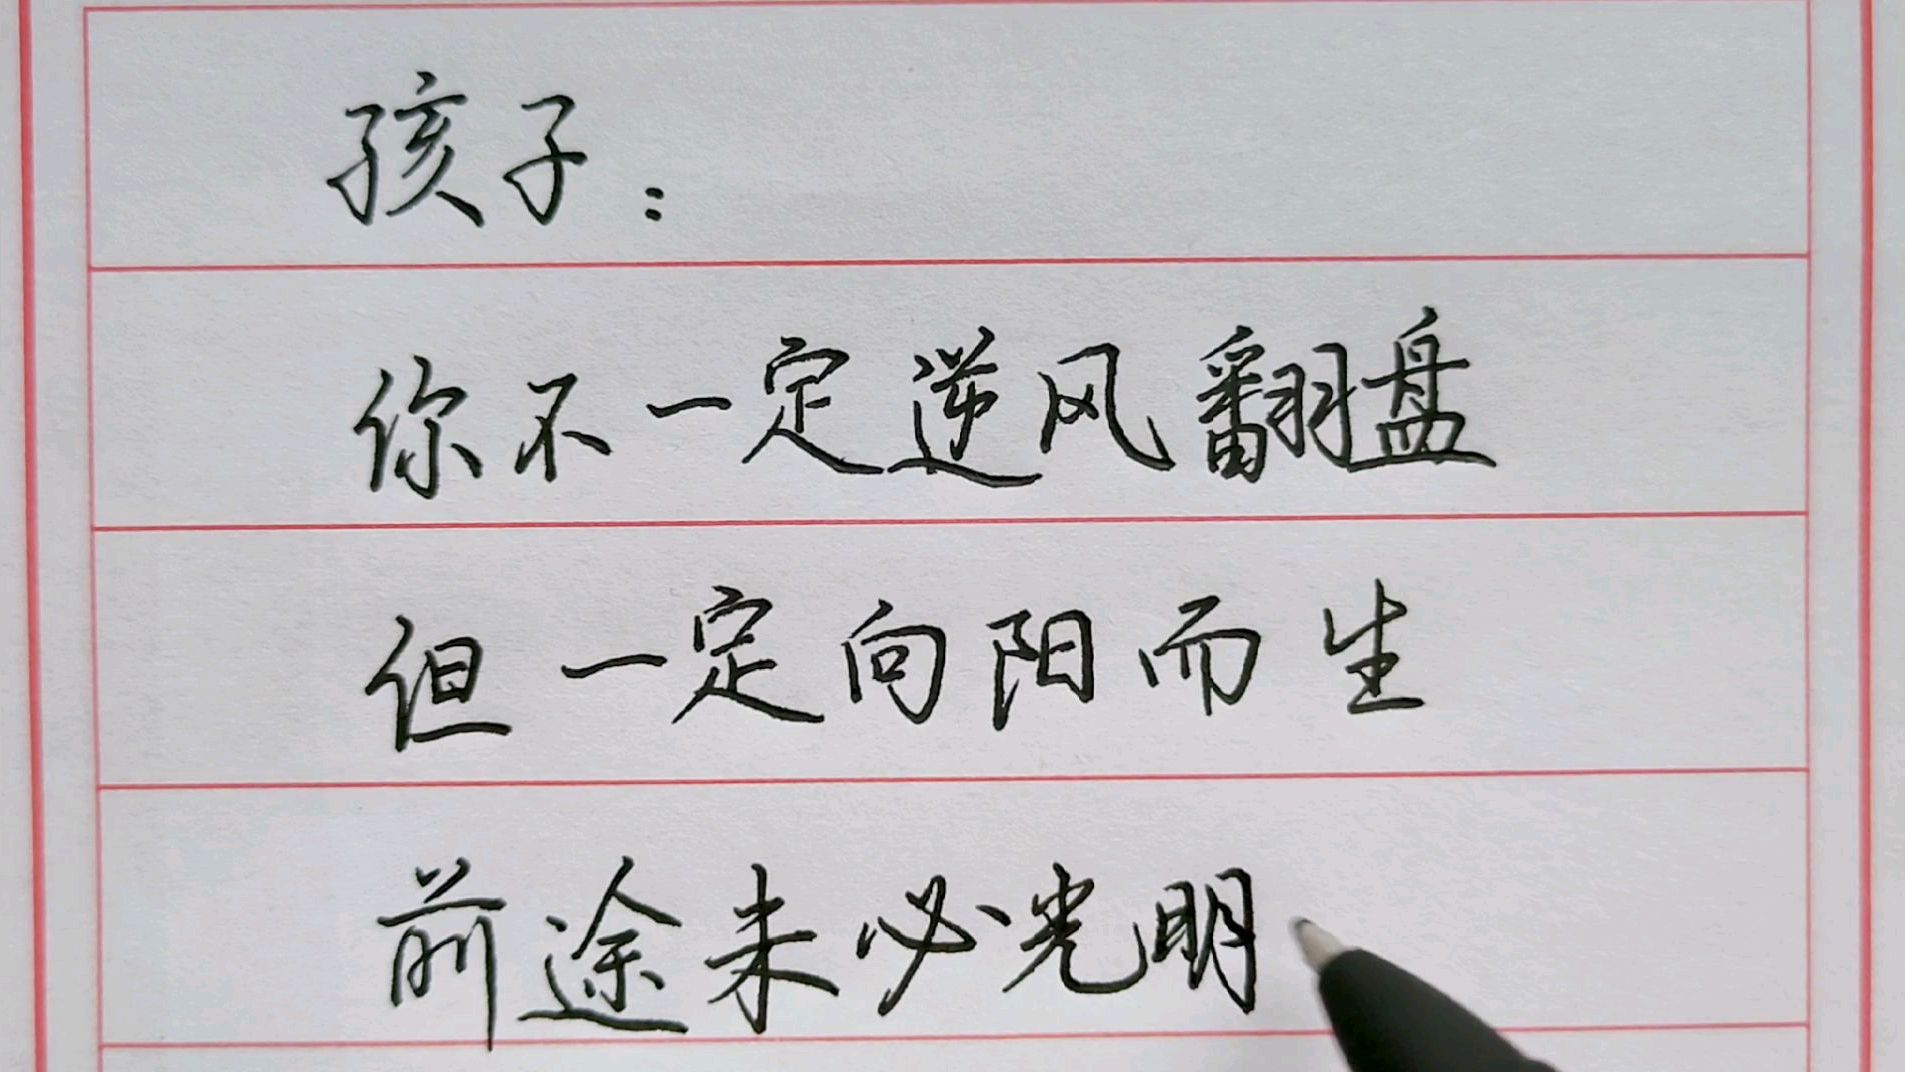 孩子：
你不一定逆风翻盘
但一定向阳而生
前途未必光明